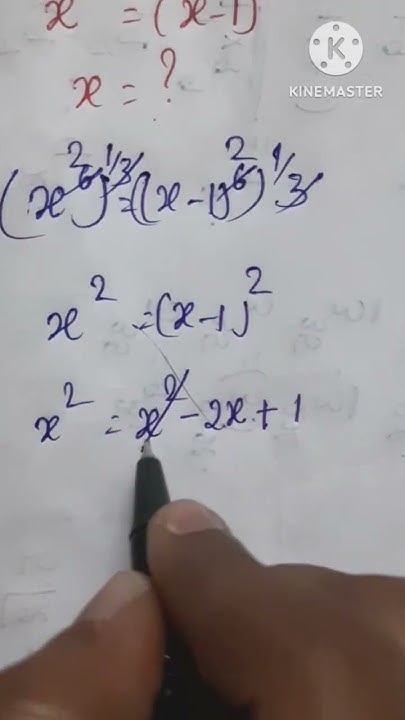 x = (x-1)
KINEMASTER
x = ?
(x⁶²)^1/3 = (x-1)⁶²)^1/3
x² = (x-1)²
x² = x² - 2x + 1